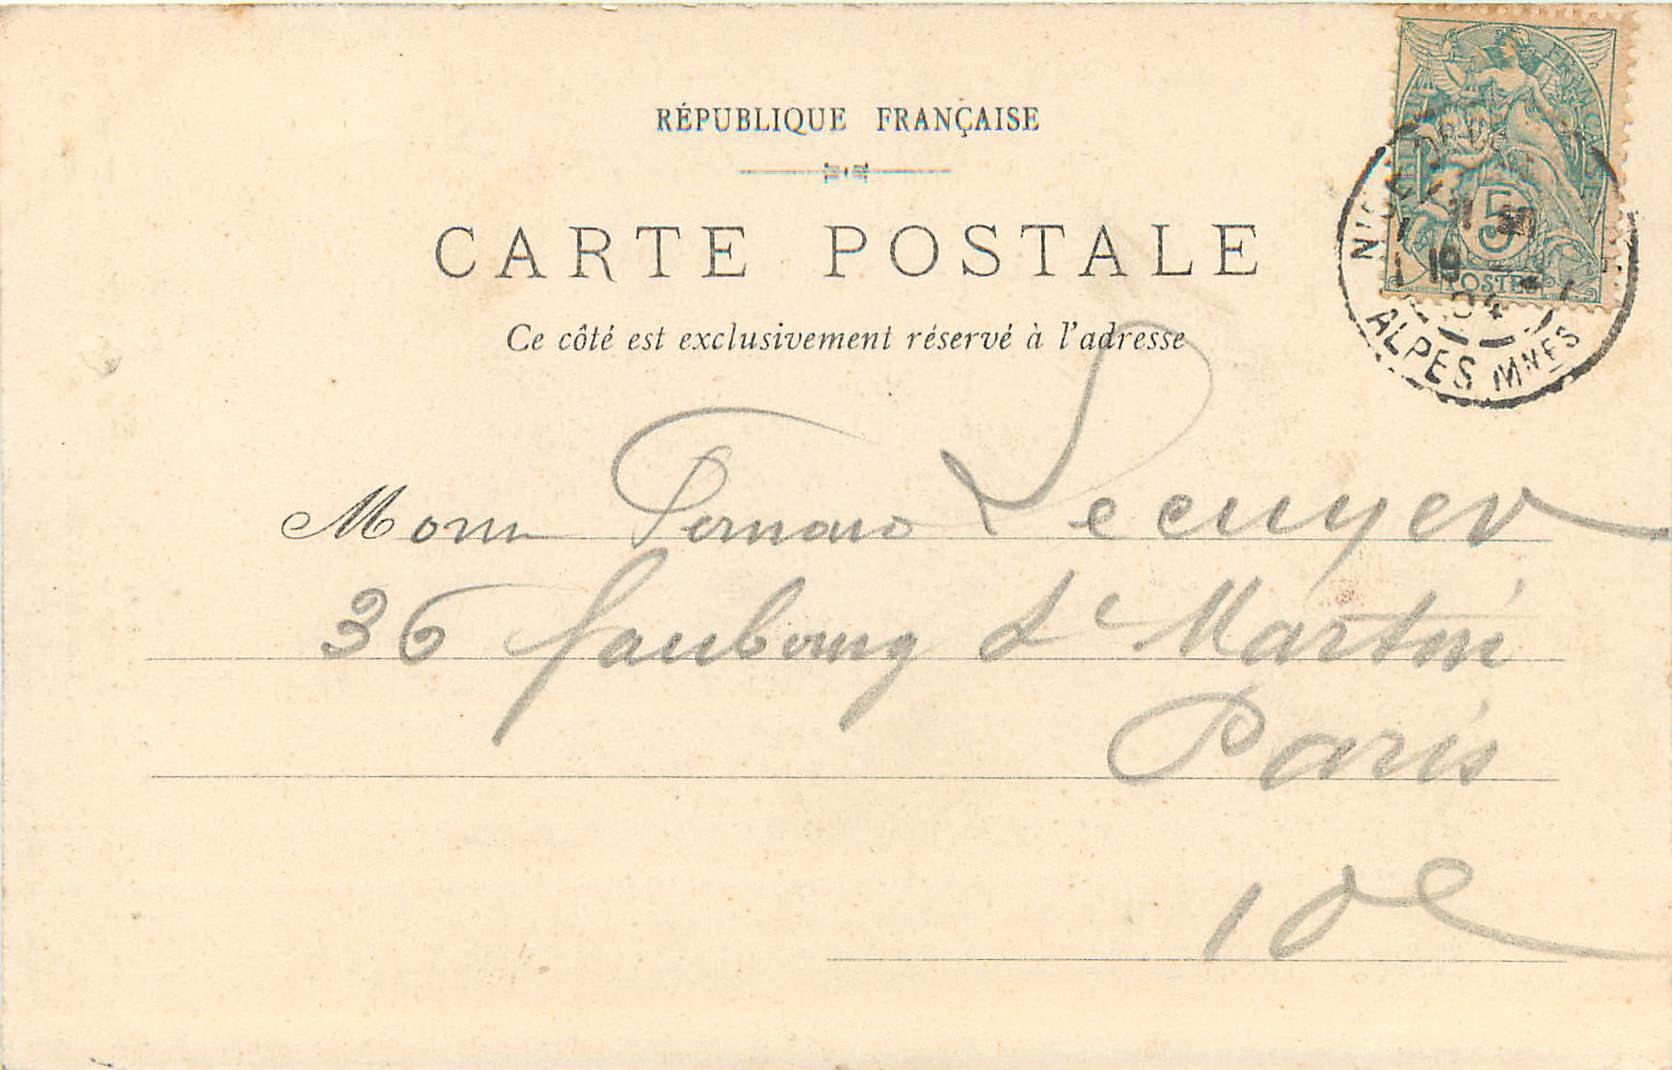 RÉPUBLIQUE FRANÇAISE
CARTE POSTALE
Ce côté est exclusivement réservé à l'adresse
FRANÇAISE
5
POSTES
19
04
ALPES MNES
Monr Fernand Lecuyer
36 faubourg St Martin
Paris
10e